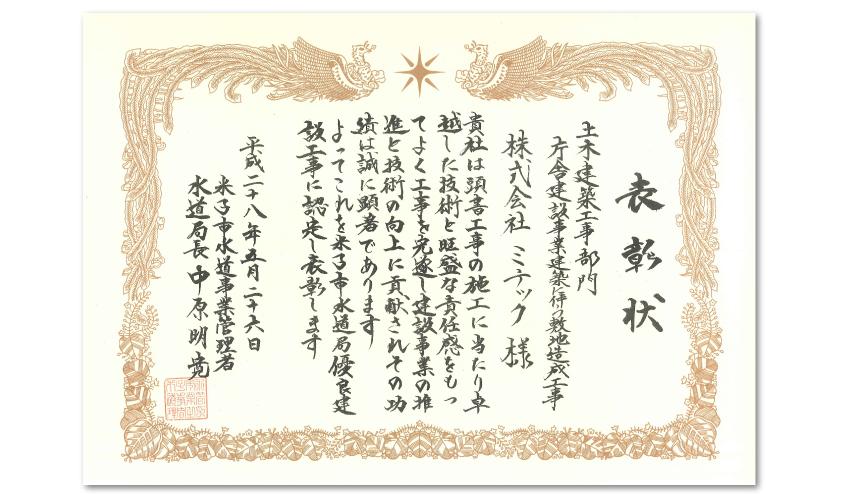 表彰状
土木建築工事部門
庁舎建設事業建築に伴う敷地造成工事
株式会社 ミテック 様
貴社は頭書工事の施工に当たり卓
越した技術と旺盛な責任感をもっ
てよく工事を完遂し建設事業の推
進と技術の向上に貢献されその功
績は誠に顕著であります
よってこれを米子市水道局優良建
設工事に認定し表彰します
平成二十八年五月二十六日
米子市水道事業管理者
水道局長 中原明寛